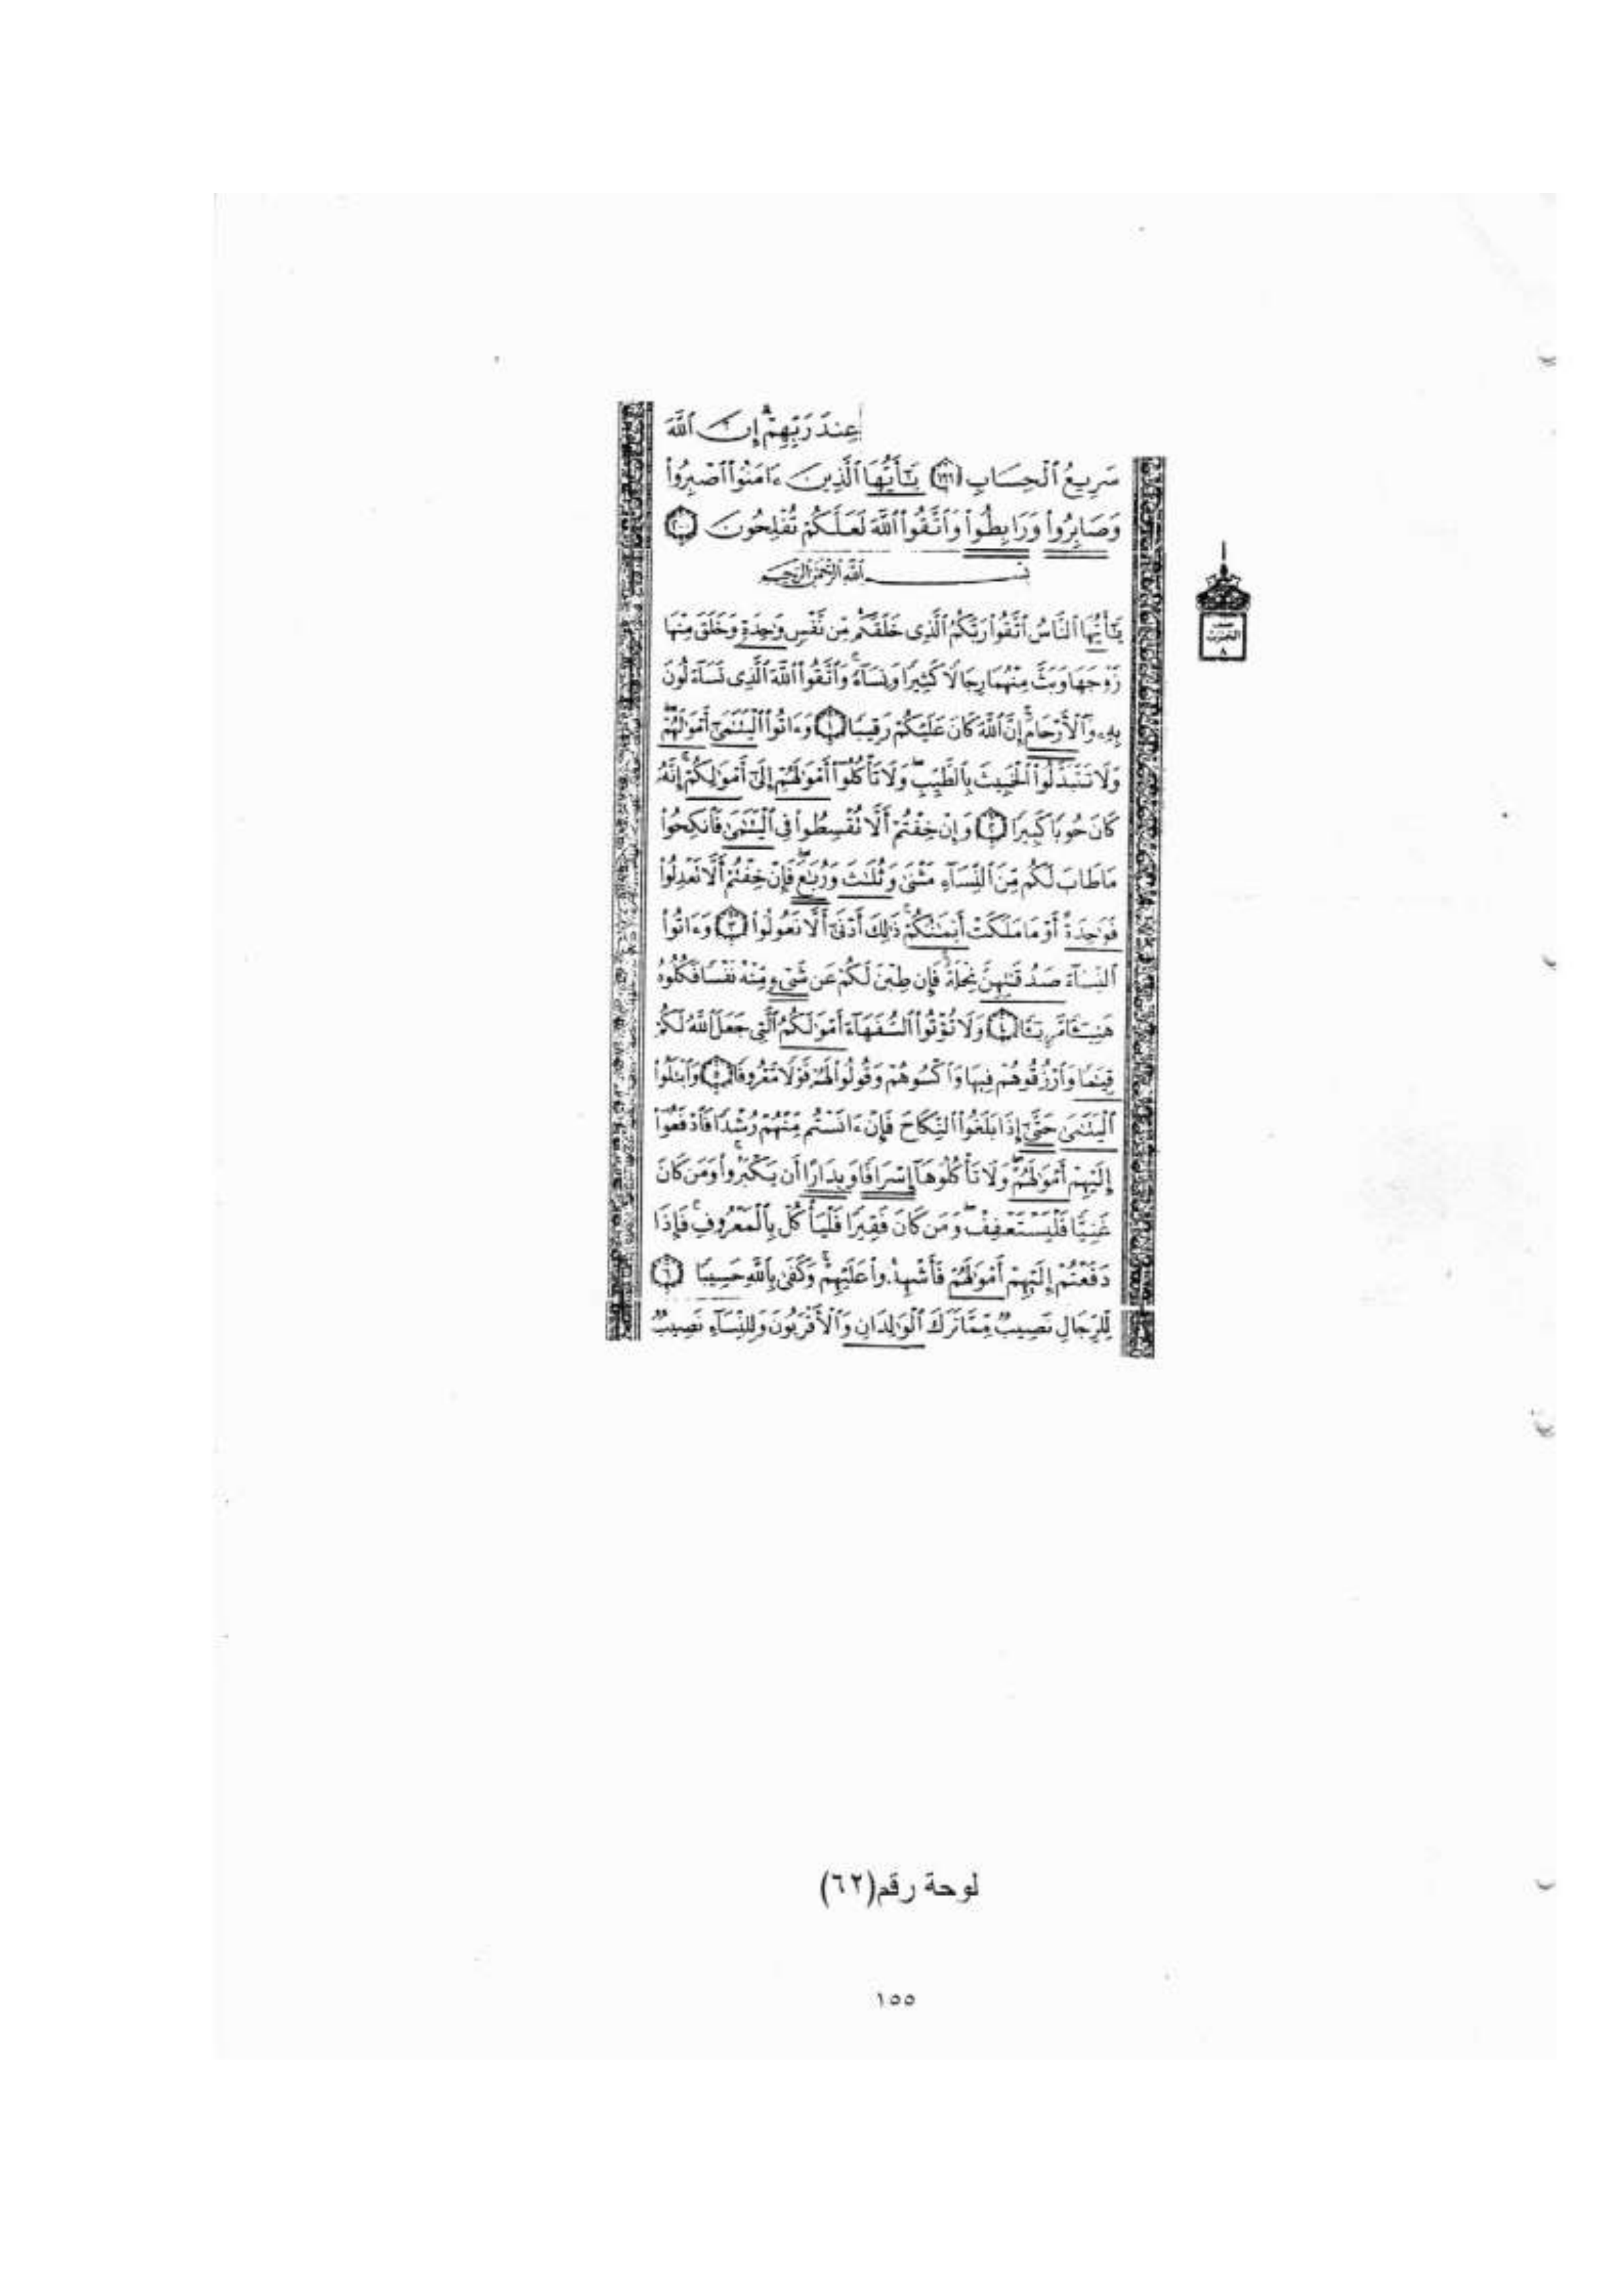 عِندَ رَبِّهِمْ ۗ إِنَّ ٱللَّهَ
سَرِيعُ ٱلْحِسَابِ ﴿١٩٩﴾ يَـٰٓأَيُّهَا ٱلَّذِينَ ءَامَنُوا۟ ٱصْبِرُوا۟
وَصَابِرُوا۟ وَرَابِطُوا۟ وَٱتَّقُوا۟ ٱللَّهَ لَعَلَّكُمْ تُفْلِحُونَ ﴿٢٠٠﴾
بِسْمِ ٱللَّهِ ٱلرَّحْمَـٰنِ ٱلرَّحِيمِ
يَـٰٓأَيُّهَا ٱلنَّاسُ ٱتَّقُوا۟ رَبَّكُمُ ٱلَّذِى خَلَقَكُم مِّن نَّفْسٍ وَٰحِدَةٍ وَخَلَقَ مِنْهَا
زَوْجَهَا وَبَثَّ مِنْهُمَا رِجَالًا كَثِيرًا وَنِسَآءً ۚ وَٱتَّقُوا۟ ٱللَّهَ ٱلَّذِى تَسَآءَلُونَ
بِهِۦ وَٱلْأَرْحَامَ ۚ إِنَّ ٱللَّهَ كَانَ عَلَيْكُمْ رَقِيبًا ﴿١﴾ وَءَاتُوا۟ ٱلْيَتَـٰمَىٰٓ أَمْوَٰلَهُمْ ۖ
وَلَا تَتَبَدَّلُوا۟ ٱلْخَبِيثَ بِٱلطَّيِّبِ ۖ وَلَا تَأْكُلُوٓا۟ أَمْوَٰلَهُمْ إِلَىٰٓ أَمْوَٰلِكُمْ ۚ إِنَّهُۥ
كَانَ حُوبًا كَبِيرًا ﴿٢﴾ وَإِنْ خِفْتُمْ أَلَّا تُقْسِطُوا۟ فِى ٱلْيَتَـٰمَىٰ فَٱنكِحُوا۟
مَا طَابَ لَكُم مِّنَ ٱلنِّسَآءِ مَثْنَىٰ وَثُلَـٰثَ وَرُبَـٰعَ ۖ فَإِنْ خِفْتُمْ أَلَّا تَعْدِلُوا۟
فَوَٰحِدَةً أَوْ مَا مَلَكَتْ أَيْمَـٰنُكُمْ ۚ ذَٰلِكَ أَدْنَىٰٓ أَلَّا تَعُولُوا۟ ﴿٣﴾ وَءَاتُوا۟
ٱلنِّسَآءَ صَدُقَـٰتِهِنَّ نِحْلَةً ۚ فَإِن طِبْنَ لَكُمْ عَن شَىْءٍ مِّنْهُ نَفْسًا فَكُلُوهُ
هَنِيٓـًٔا مَّرِيٓـًٔا ﴿٤﴾ وَلَا تُؤْتُوا۟ ٱلسُّفَهَآءَ أَمْوَٰلَكُمُ ٱلَّتِى جَعَلَ ٱللَّهُ لَكُمْ
قِيَـٰمًا وَٱرْزُقُوهُمْ فِيهَا وَٱكْسُوهُمْ وَقُولُوا۟ لَهُمْ قَوْلًا مَّعْرُوفًا ﴿٥﴾ وَٱبْتَلُوا۟
ٱلْيَتَـٰمَىٰ حَتَّىٰٓ إِذَا بَلَغُوا۟ ٱلنِّكَاحَ فَإِنْ ءَانَسْتُم مِّنْهُمْ رُشْدًا فَٱدْفَعُوٓا۟
إِلَيْهِمْ أَمْوَٰلَهُمْ ۖ وَلَا تَأْكُلُوهَآ إِسْرَافًا وَبِدَارًا أَن يَكْبَرُوا۟ ۚ وَمَن كَانَ
غَنِيًّا فَلْيَسْتَعْفِفْ ۖ وَمَن كَانَ فَقِيرًا فَلْيَأْكُلْ بِٱلْمَعْرُوفِ ۚ فَإِذَا
دَفَعْتُمْ إِلَيْهِمْ أَمْوَٰلَهُمْ فَأَشْهِدُوا۟ عَلَيْهِمْ ۚ وَكَفَىٰ بِٱللَّهِ حَسِيبًا ﴿٦﴾
لِّلرِّجَالِ نَصِيبٌ مِّمَّا تَرَكَ ٱلْوَٰلِدَانِ وَٱلْأَقْرَبُونَ وَلِلنِّسَآءِ نَصِيبٌ
نصف
الحزب
٨
لوحة رقم(٦٢)
١٥٥